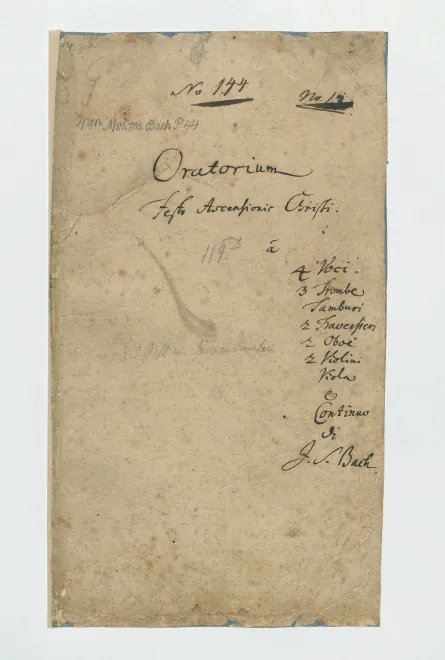 No 144
No. 13
Mus. ms. Bach. P 44
Oratorium
Festo Ascensionis Christi.
à
4 Voci.
3 Trombe
Tamburi
2 Traversieri
2 Oboe
2 Violini
Viola
e
Continuo
di
J. S. Bach.